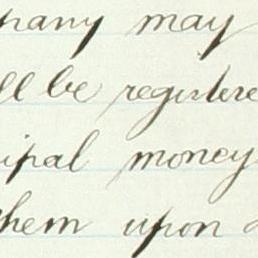 pany may
ll be registere
ipal money
them upon a